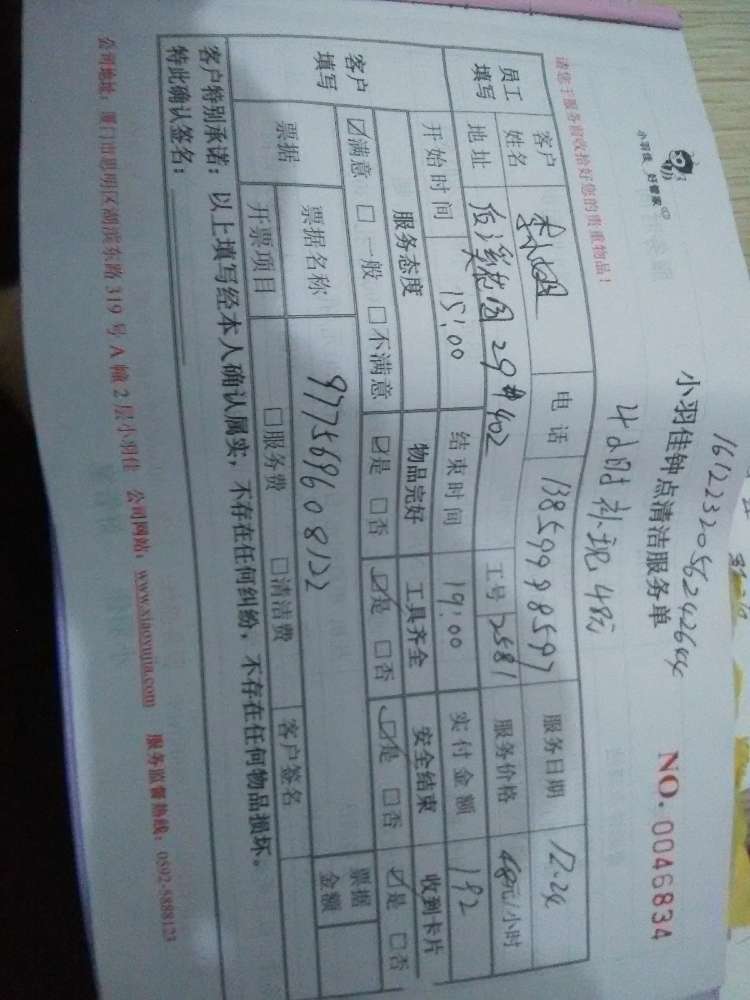 161223205624264
小羽佳 好管家
小羽佳钟点清洁服务单
NO. 0046834
4小时 补现 48元
请您于服务前收拾好您的贵重物品！
员工填写
客户姓名
李小姐
电话
13859998597
服务日期
12.24
地址
29#402
工号
2581
服务价格
48元/小时
开始时间
15:00
结束时间
19:00
实付金额
192
客户填写
服务态度
物品完好
工具齐全
安全结束
收到卡片
☑满意 □一般 □不满意
☑是 □否
☑是 □否
☑是 □否
☑是 □否
票据
票据名称
977569608122
票据金额
开票项目
□服务费 □清洁费
客户签名
客户特别承诺：以上填写经本人确认属实，不存在任何纠纷，不存在任何物品损坏。
特此确认签名：
公司地址：厦门市思明区湖滨东路319号A幢2层小羽佳 公司网站：www.xiaoyujia.com 服务监督热线：0592-5888123